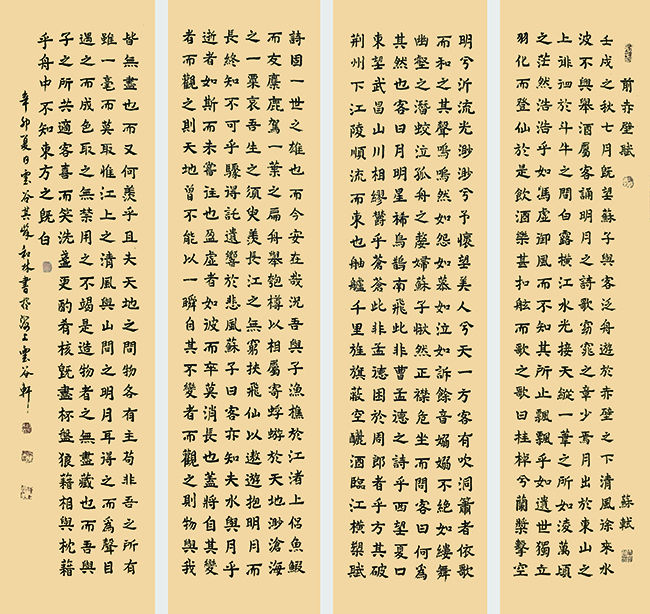 前赤壁賦 蘇軾
壬戌之秋七月既望蘇子與客泛舟遊於赤壁之下清風徐來水
波不興舉酒屬客誦明月之詩歌窈窕之章少焉月出於東山之
上徘徊於斗牛之間白露橫江水光接天縱一葦之所如凌萬頃
之茫然浩浩乎如馮虛御風而不知其所止飄飄乎如遺世獨立
羽化而登仙於是飲酒樂甚扣舷而歌之歌曰桂棹兮蘭槳擊空
明兮泝流光渺渺兮予懷望美人兮天一方客有吹洞簫者依歌
而和之其聲嗚嗚然如怨如慕如泣如訴餘音嫋嫋不絕如縷舞
幽壑之潛蛟泣孤舟之嫠婦蘇子愀然正襟危坐而問客曰何爲
其然也客曰月明星稀烏鵲南飛此非曹孟德之詩乎西望夏口
東望武昌山川相繆鬱乎蒼蒼此非孟德困於周郎者乎方其破
荆州下江陵順流而東也舳艫千里旌旗蔽空釃酒臨江橫槊賦
詩固一世之雄也而今安在哉況吾與子漁樵於江渚上侶魚鰕
而友麋鹿駕一葉之扁舟舉匏樽以相屬寄蜉蝣於天地渺滄海
之一粟哀吾生之須臾羨長江之無窮挾飛仙以遨遊抱明月而
長終知不可乎驟得託遺響於悲風蘇子曰客亦知夫水與月乎
逝者如斯而未嘗往也盈虛者如彼而卒莫消長也蓋將自其變
者而觀之則天地曾不能以一瞬自其不變者而觀之則物與我
皆無盡也而又何羨乎且夫天地之間物各有主苟非吾之所有
雖一毫而莫取惟江上之清風與山間之明月耳得之而爲聲目
遇之而成色取之無禁用之不竭是造物者之無盡藏也而吾與
子之所共適客喜而笑洗盞更酌肴核既盡杯盤狼藉相與枕藉
乎舟中不知東方之既白
辛卯夏日雲谷和林書於海上雲谷軒